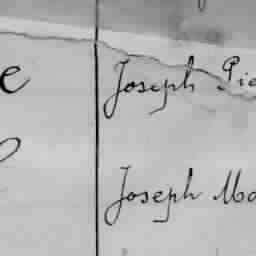 e Joseph Pie
Joseph Ma